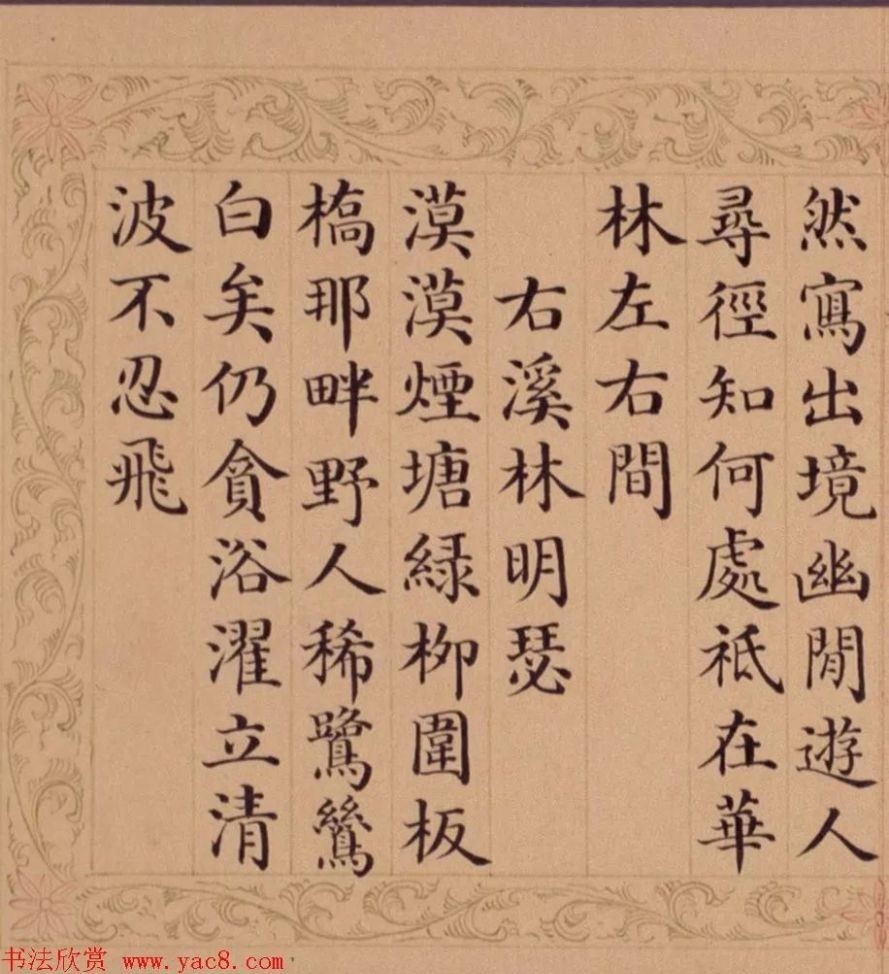 然寫出境幽閒遊人
尋徑知何處祗在華
林左右間
右溪林明瑟
漠漠煙塘緑柳圍板
橋那畔野人稀鷺鷥
白矣仍貪浴濯立清
波不忍飛
书法欣赏 www.yac8.com